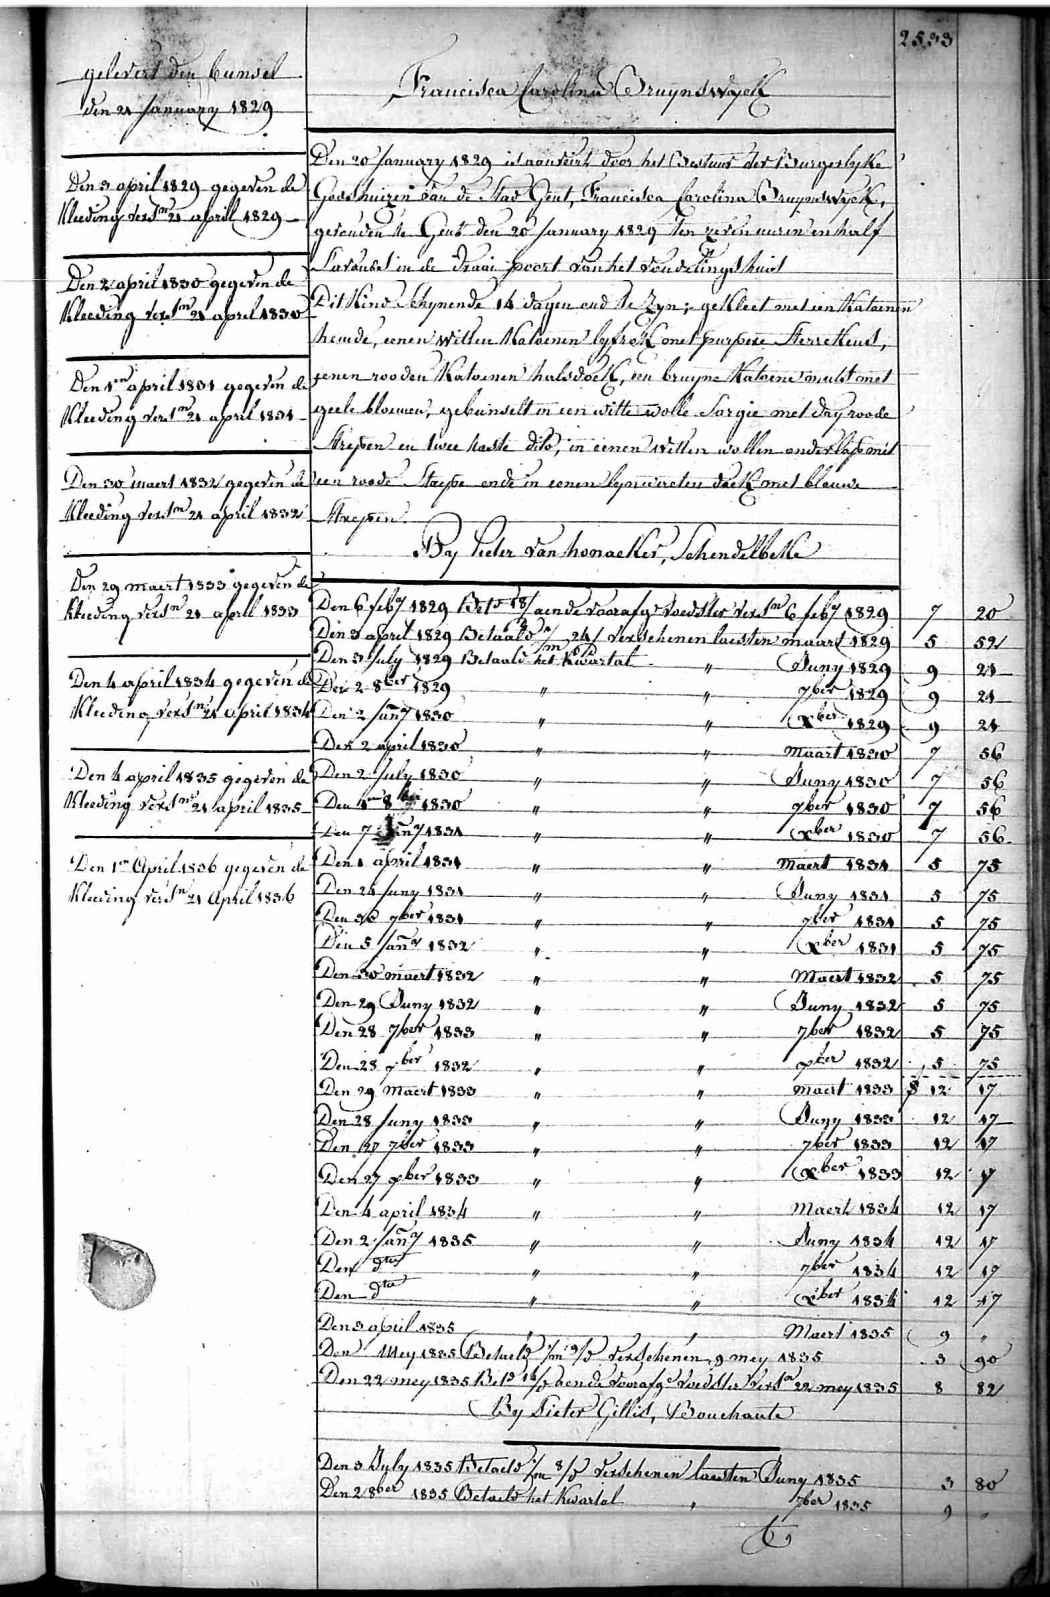 2533
gelevert den bunsel
den 21 January 1829
Den 3 april 1829 gegeven de
Kleeding versn 21 april 1829
Den 2 april 1830 gegeven de
Kleeding versn 21 april 1830
Den 1en april 1831 gegeven de
Kleeding versn 21 april 1831
Den 30 maert 1832 gegeven de
Kleeding versn 21 april 1832
Den 29 maert 1833 gegeven de
Kleeding versn 21 april 1833
Den 4 april 1834 gegeven de
Kleeding versn 21 april 1834
Den 4 april 1835 gegeven de
Kleeding versn 21 april 1835
Den 1en April 1836 gegeven de
Kleeding versn 21 April 1836
Francisca Carolina Bruynswyck
Den 20 January 1829 is aanveirt door het Bestuur der Burgerlyke
Godshuizen van de Stad Gent, Francisca Carolina Bruynswyck,
gevonden te Gent den 20 January 1829 ten zeven uren en half
S'avonds in de draai poort van het vondelingshuis
Dit Kind schynende 14 dagen oud te zyn; gekleet met een Katoenen
hemde, eenen witten Katoenen lyfrok met purpere sterrekens,
eenen rooden Katoenen halsdoek, een bruyne Katoene muts met
geele bloemen, gebunselt in een witte wolle sargie met dry roode
strepen en twee dito, in eenen witten wollen onderlap met
een roode streepe ende in eenen lynwaeten doek met blauwe
strepen.
By Pieter van honacker, Schendelbeke
Den 6 feby 1829 Betd 18/ aende voorafge voedster versn 6 feby 1829 7 20
Den 3 april 1829 Betaald 24/ verschenen laesten maart 1829 5 52
Den 3 July 1829 Betaald het Kwartal " Juny 1829 9 21
Den 2 8ber 1829 " " 7ber 1829 9 21
Den 2 Jany 1830 " " Xber 1829 9 21
Den 2 april 1830 " " maart 1830 7 56
Den 2 July 1830 " " Juny 1830 7 56
Den 1en 8ber 1830 " " 7ber 1830 7 56
Den 7 Jany 1831 " " Xber 1830 7 56
Den 1 april 1831 " " maert 1831 5 75
Den 24 Juny 1831 " " Juny 1831 5 75
Den 30 7ber 1831 " " 7ber 1831 5 75
Den 5 Jany 1832 " " Xber 1831 5 75
Den 30 maert 1832 " " Maert 1832 5 75
Den 29 Juny 1832 " " Juny 1832 5 75
Den 28 7ber 1833 " " 7ber 1832 5 75
Den 28 xber 1832 " " xber 1832 5 75
Den 29 Maert 1833 " " maert 1833 12 17
Den 28 Juny 1833 " " Juny 1833 12 17
Den 27 7ber 1833 " " 7ber 1833 12 17
Den 27 xber 1833 " " Xber 1833 12 17
Den 4 april 1834 " " Maert 1834 12 17
Den 2 Jany 1835 " " Juny 1834 12 17
Den dto " " 7ber 1834 12 17
Den dto " " Xber 1834 12 17
Den 3 april 1835 " Maert 1835 9 "
Den Mey 1835 Betaeld verschenen 9 mey 1835 3 90
Den 22 mey 1835 Betd aende voorafge voedster versn 22 mey 1835 8 82
By Pieter Gillis, Bouchaute
Den 3 July 1835 Betaeld verschenen laesten Juny 1835 3 80
Den 2 8ber 1835 Betaeld het Kwartal " 7ber 1835 9 "